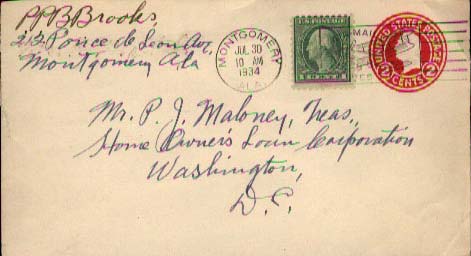 P.P.B. Brooks,
212 Ponce de Leon Ave
Montgomery Ala
MONTGOMERY
JUL 30
10 AM
1934
ALA.
MAIL
UNITED STATES POSTAGE
2 CENTS 2
Mr. P. J. Maloney, Treas,
Home Owner's Loan Corporation
Washington,
D.C.